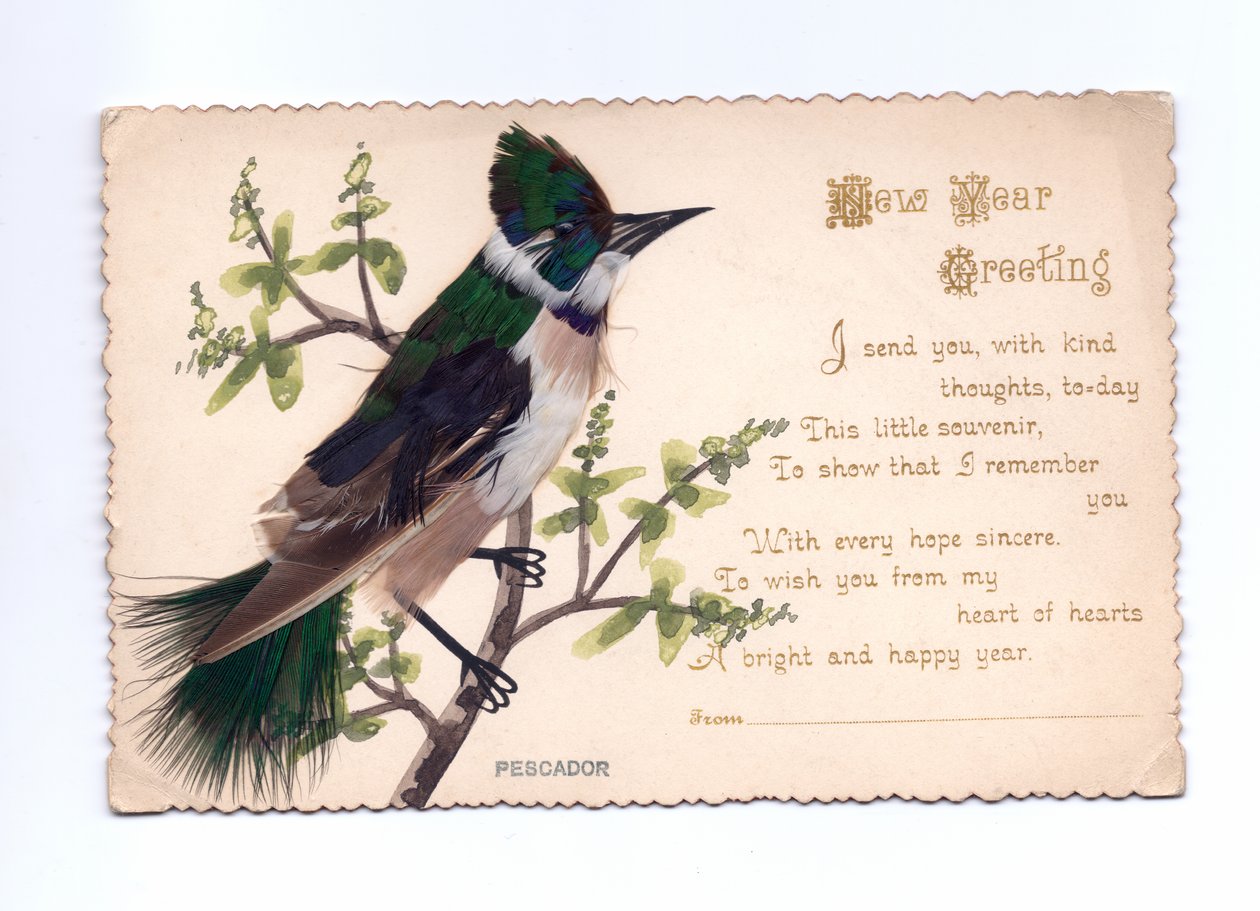 New Year
Greeting
I send you, with kind
thoughts, to=day
This little souvenir,
To show that I remember
you
With every hope sincere.
To wish you from my
heart of hearts
A bright and happy year.
From
PESCADOR